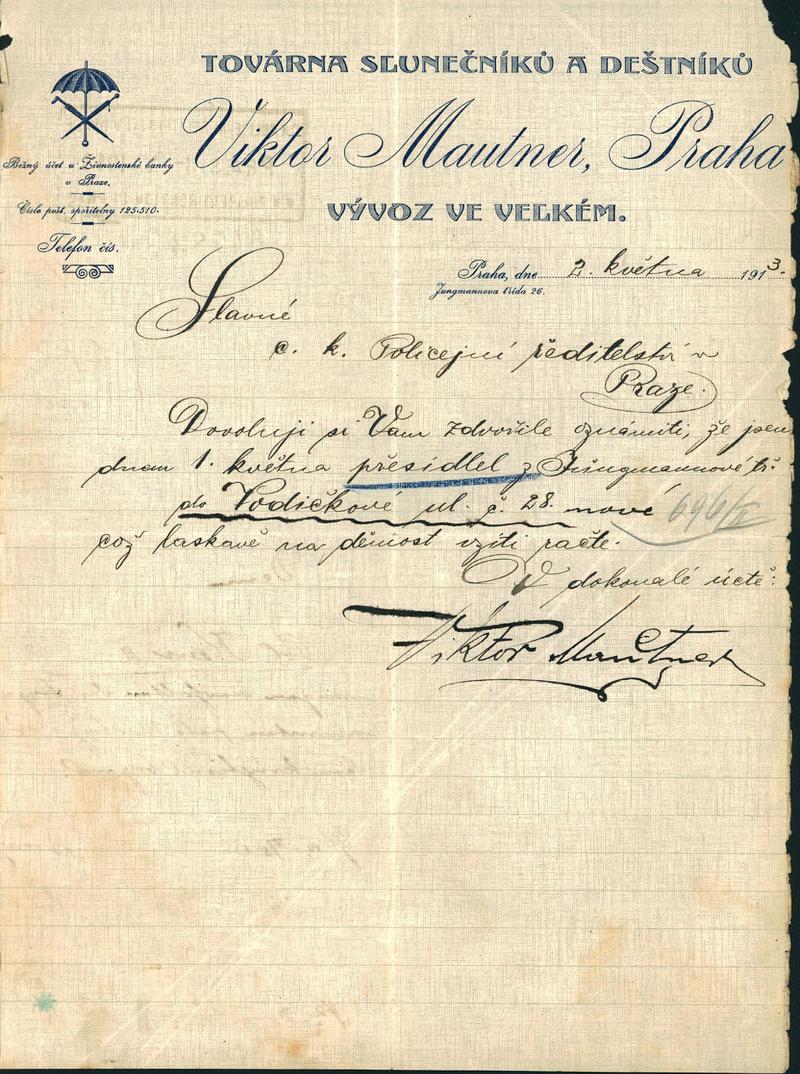 TOVÁRNA SLUNEČNÍKŮ A DEŠTNÍKŮ
Viktor Mautner, Praha
VÝVOZ VE VELKÉM.
Běžný účet u Živnostenské banky
v Praze.
Číslo pošt. spořitelny 125.510.
Telefon čís.
Praha, dne 2. května 1913.
Jungmannova třída 26.
Slavné
c. k. Policejní ředitelství v
Praze.
Dovoluji si Vám zdvořile oznámiti, že jsem
dnem 1. května přesídlel z Jungmannové tř.
do Vodičkové ul. č. 28. nové
696/II
což laskavě na vzíti račte.
V dokonalé úctě:
Viktor Mautner